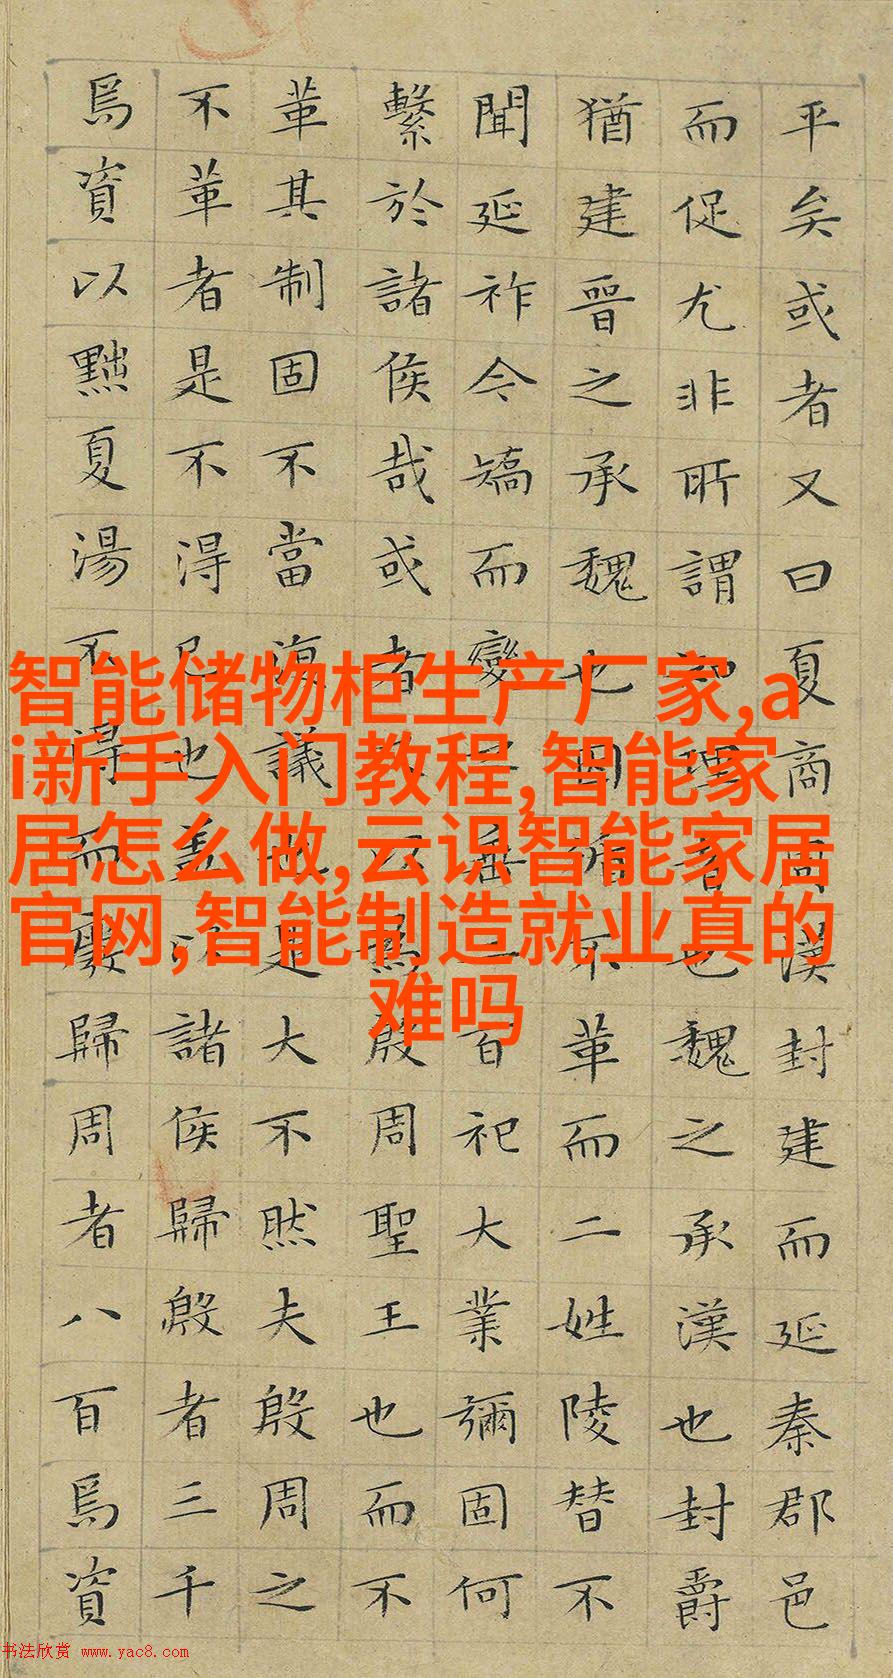 平矣或者又曰夏商周漢封建而延秦郡邑
而促尤非所謂知理者也魏之承漢也封爵
猶建晉之承魏也因循不革而二姓陵替不
聞延祚今矯而變之垂二百祀大業彌固何
繫於諸侯哉或者又以為殷周聖王也而不
革其制固不當復議也是大不然夫殷周之
不革者是不得已也蓋以諸侯歸殷者三千
焉資以黜夏湯不得而廢歸周者八百焉資
智能储物柜生产厂家,a
i新手入门教程,智能家
居怎么做,云识智能家居
官网,智能制造就业真的
难吗
书法欣赏 www.yac8.com